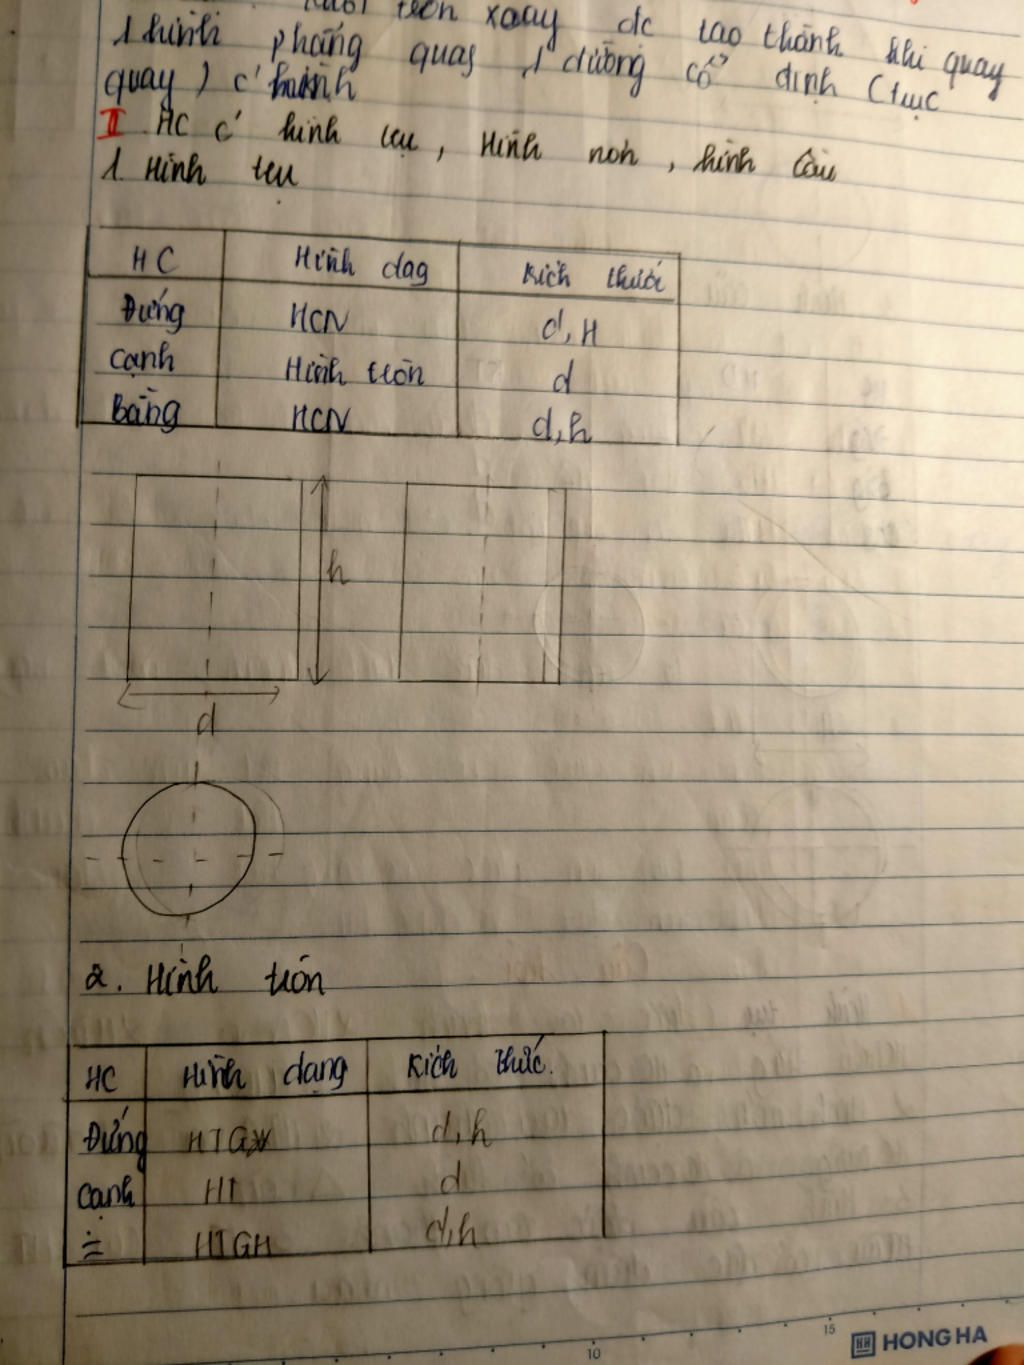 tròn xoay dc tạo thành khi quay
1 hình phẳng quay 1 đường cố định (trục
quay) c' hình
II HC c' hình trụ, Hình nón, hình cầu
1. Hình trụ
HC Hình dạg Kích thước
Đứng HCN d, H
Cạnh Hình tròn d
Bằng HCN d, h
h
d
2. Hình tròn
HC Hình dạng Kích thức.
Đứng d, h
Cạnh HT d
∸ HTGH d, h
10
15
HONG HA